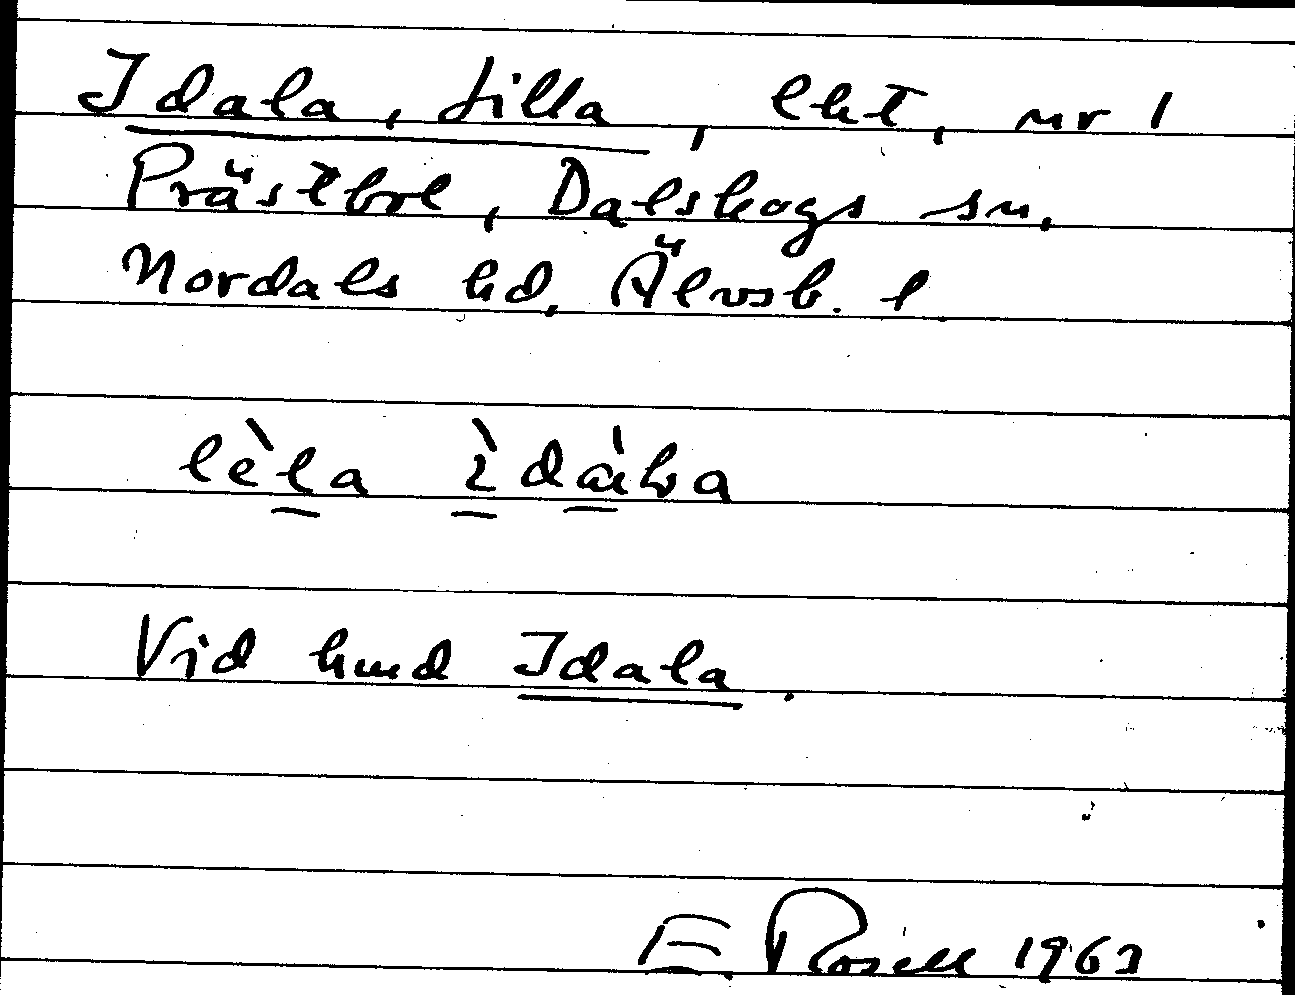 Idala, Lilla, lht, nr 1
Prästbol, Dalskogs sn.
Nordals hd, Älvsb. l
lèla ìdàla
Vid hmd Idala.
E. Rosell 1963